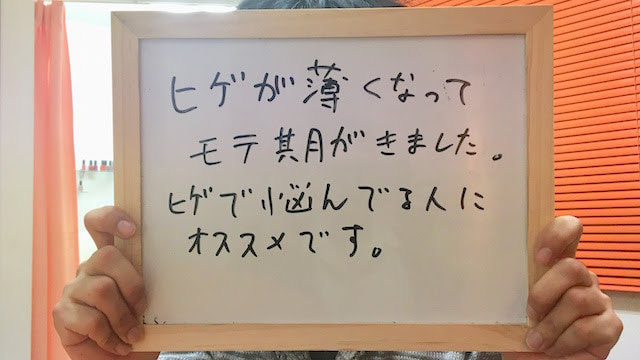 ヒゲが薄くなって
モテ期がきました。
ヒゲで悩んでる人に
オススメです。